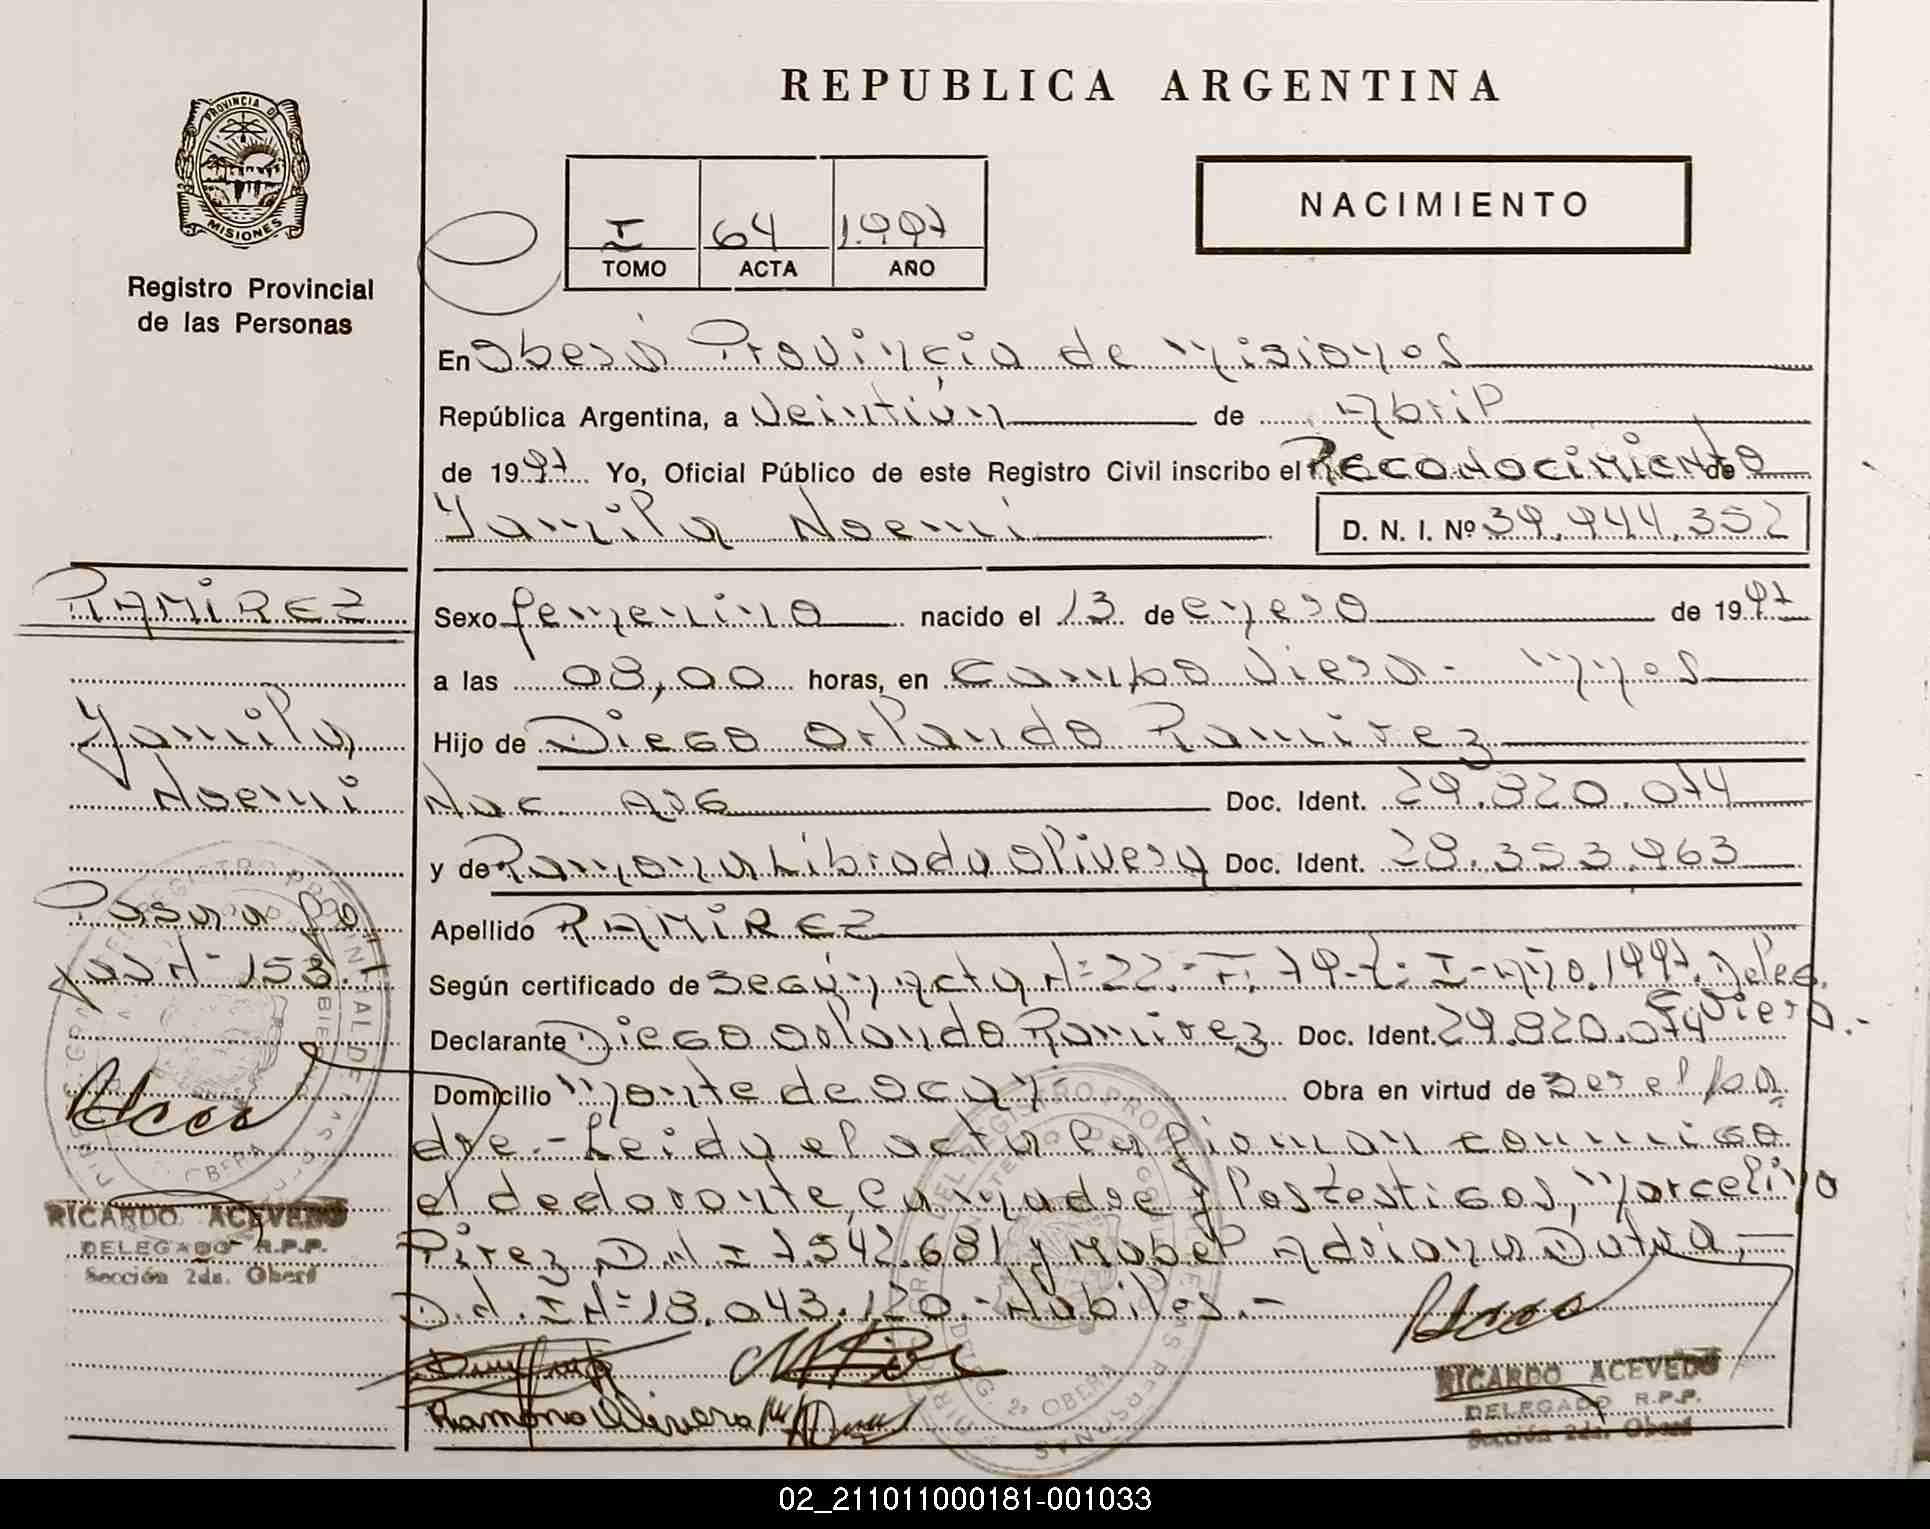 REPUBLICA ARGENTINA
PROVINCIA D
MISIONES
Registro Provincial
de las Personas
I 64 1.997
TOMO ACTA AÑO
NACIMIENTO
En Oberá Provincia de Misiones
República Argentina, a Veintiún de Abril
de 1997 Yo, Oficial Público de este Registro Civil inscribo el Reconocimiento de
Yamila Noemi D. N. I. Nº 39.944.352
RAMIREZ
Yamila
Noemi
Pasa a fo
153
RICARDO ACEVEDO
DELEGADO R.P.P.
Sección 2da. Oberá
Sexo femenino nacido el 13 de enero de 1997
a las 08,00 horas, en Campo Viera - Mnes
Hijo de Diego Orlando Ramirez
Nac Arg Doc. Ident. 29.820.074
y de Ramona Librada Olivera Doc. Ident. 28.353.963
Apellido RAMIREZ
Según certificado de Según acta Nº 22.- F: 79- T: I- Año 1997. Deleg.
C. Viera.-
Declarante Diego Orlando Ramirez Doc. Ident. 29.820.074
Domicilio Obra en virtud de ser el pa
dre.- Leida el acta la firman conmigo
el declarante, la madre y los testigos, Marcelino
Pirez D.N.I 7.542.681 y Mabel Adriana Dutra,-
D.N.I Nº 18.043.120.- Habiles.-
Ramona Olivera
RICARDO ACEVEDO
DELEGADO R.P.P.
Sección 2da. Oberá
02_211011000181-001033